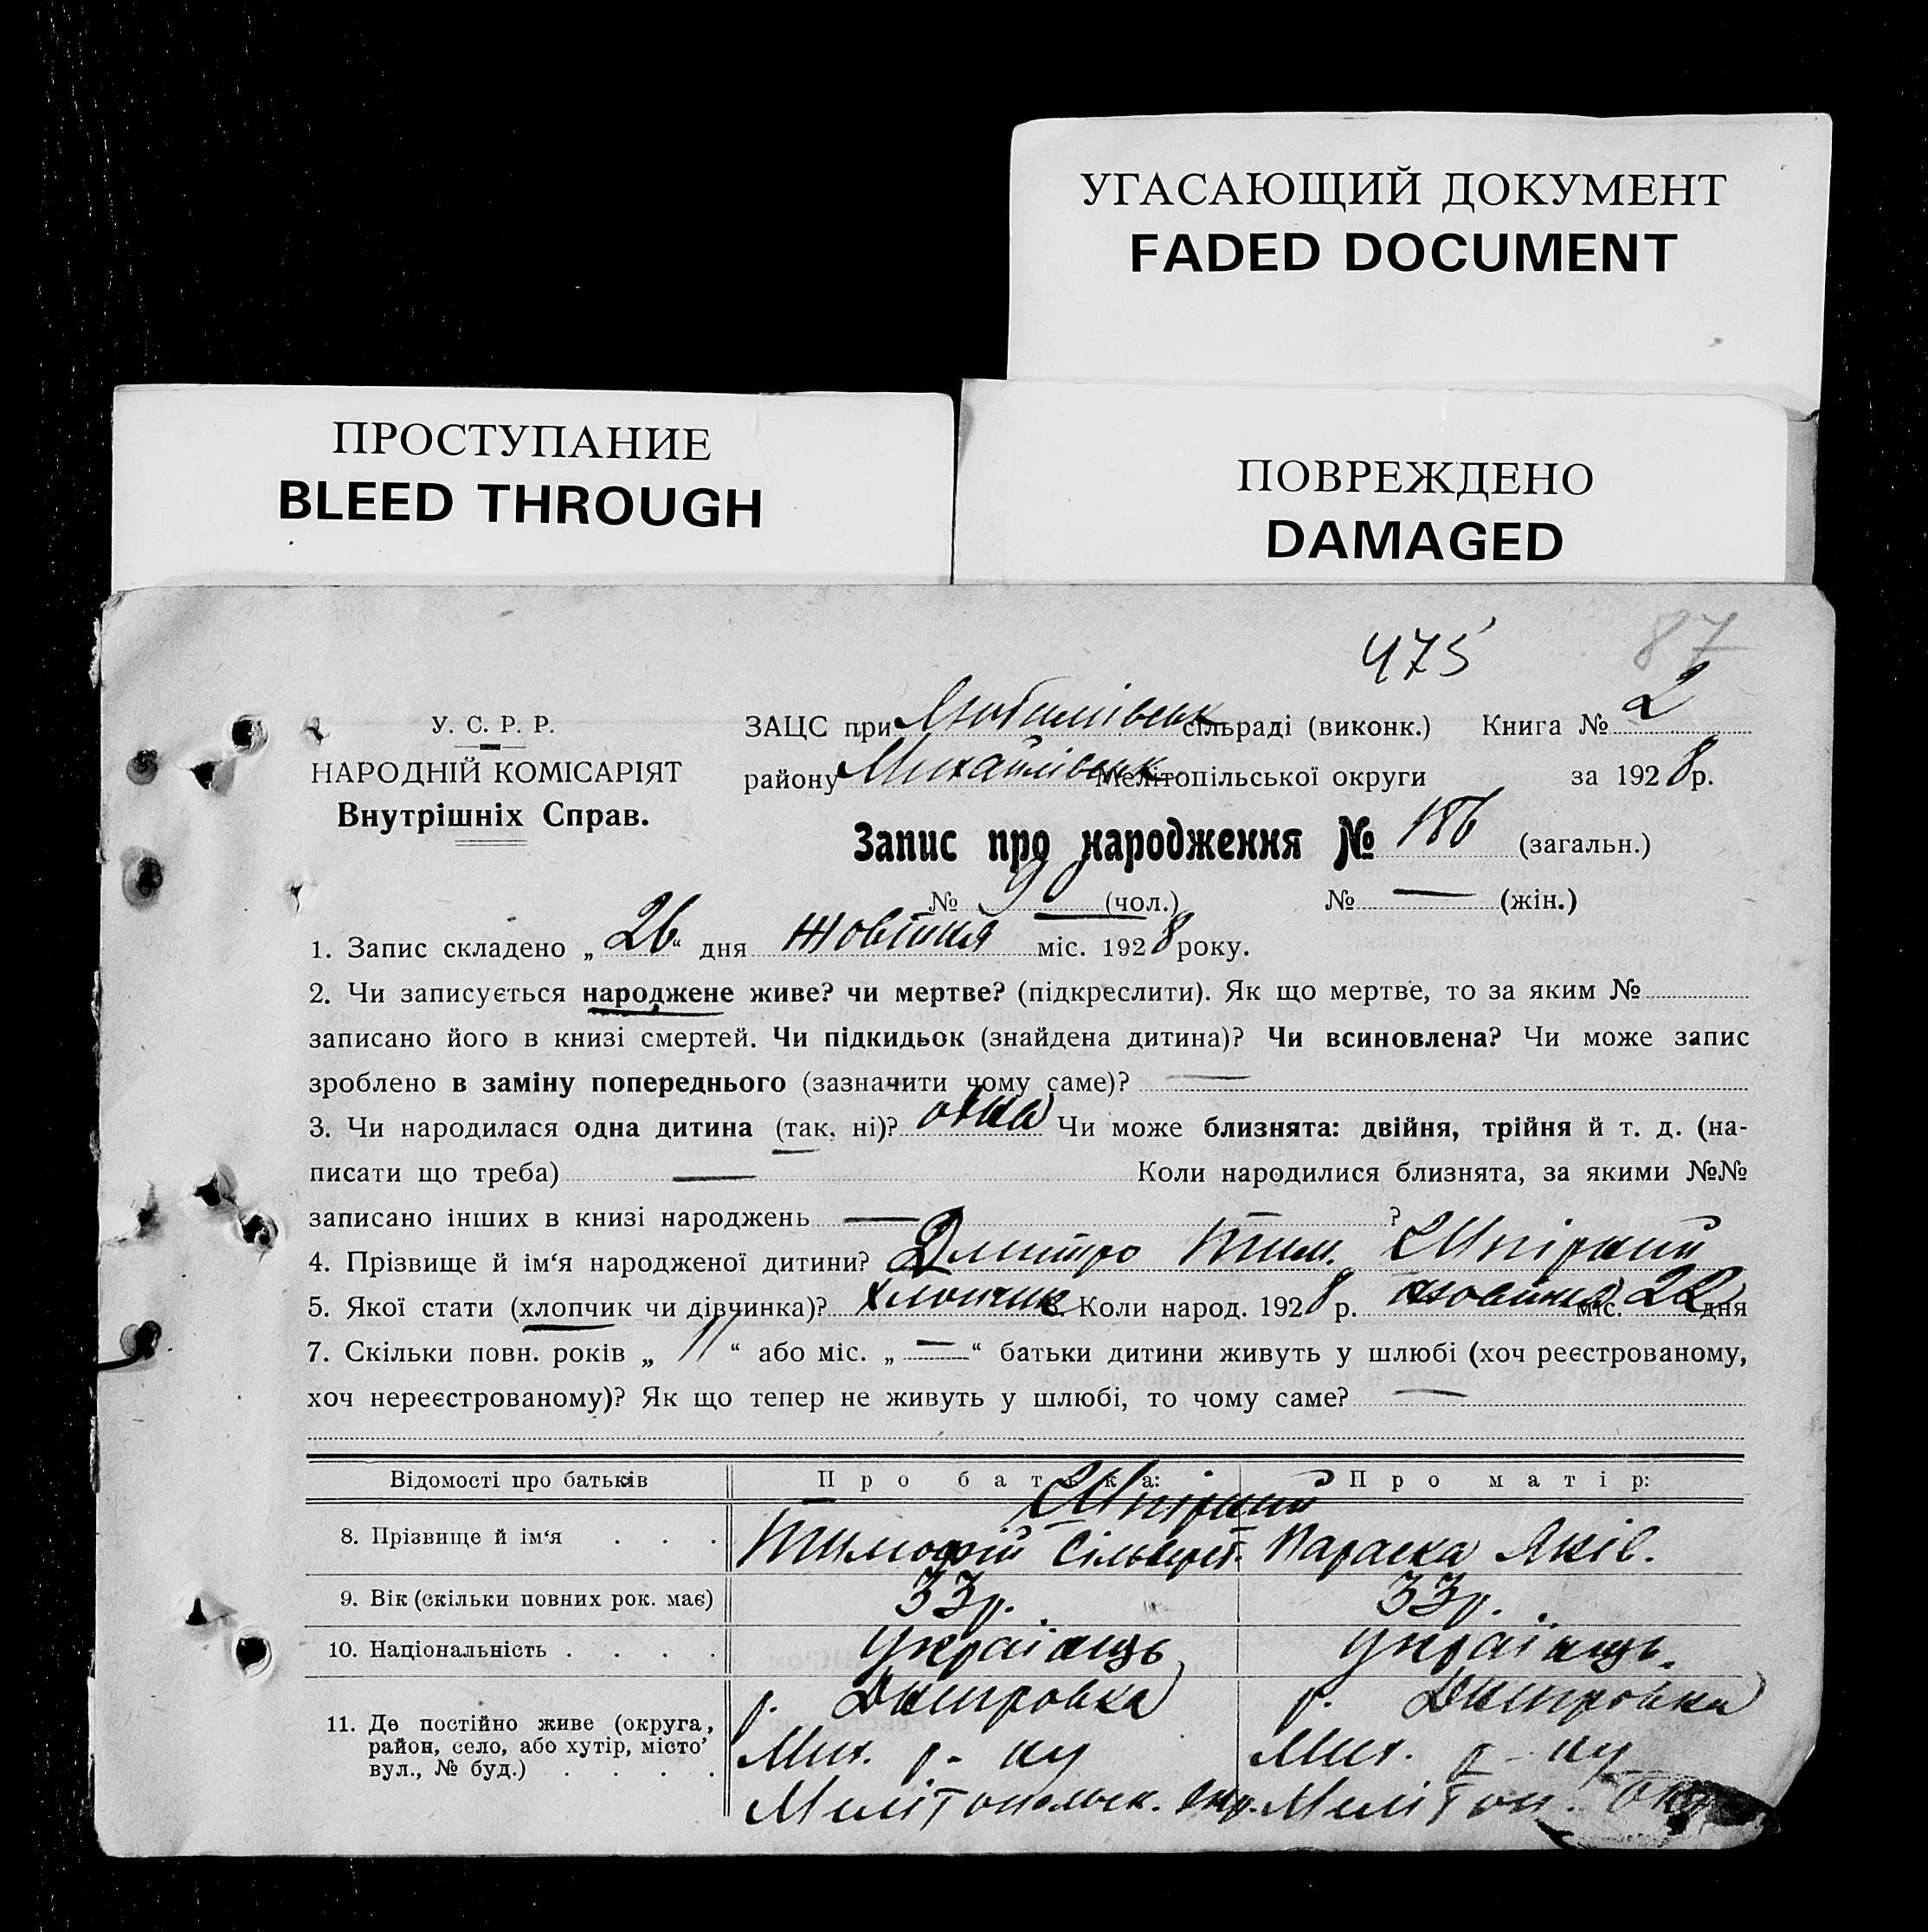 УГАСАЮЩИЙ ДОКУМЕНТ
FADED DOCUMENT
ПРОСТУПАНИЕ
BLEED THROUGH
ПОВРЕЖДЕНО
DAMAGED
475 87
У. С. Р. Р.
НАРОДНІЙ КОМІСАРІЯТ
Внутрішніх Справ.
ЗАЦС при сільраді (виконк.) Книга № 2
району Михайлівськ Мелітопільської округи за 1928 р.
Запис про народження № 186 (загальн.)
№ 90 (чол.) № — (жін.)
1. Запис складено „ 26 “ дня жовтня міс. 1928 року.
2. Чи записується народжене живе? чи мертве? (підкреслити). Як що мертве, то за яким №
записано його в книзі смертей. Чи підкидьок (знайдена дитина)? Чи всиновлена? Чи може запис
зроблено в заміну попереднього (зазначити чому саме)? —
3. Чи народилася одна дитина (так, ні)? одна Чи може близнята: двійня, трійня й т. д. (на-
писати що треба) — Коли народилися близнята, за якими №№
записано інших в книзі народжень — ?
4. Прізвище й ім‘я народженої дитини? Дмитро Тим. Шпірний
5. Якої стати (хлопчик чи дівчинка)? хлопчик Коли народ. 1928 р. жовтня міс. 22 дня
7. Скільки повн. років „ 11 “ або міс. „ — “ батьки дитини живуть у шлюбі (хоч реєстрованому,
хоч нереєстрованому)? Як що тепер не живуть у шлюбі, то чому саме? —
Відомості про батьків Про батька: Про матір:
Шпірний
8. Прізвище й ім‘я . . . Тимофій Сільверст. Параска Яків.
9. Вік (скільки повних рок. має) 33 р. 33 р.
10. Національність . . . . Українць Українць.
11. Де постійно живе (округа, р. Дмитровка р. Дмитровка
район, село, або хутір, місто’ Мих. р-ну Мих. р-ну
вул., № буд.) . . . . Мелітопольск. окр. Мелітоп. окр